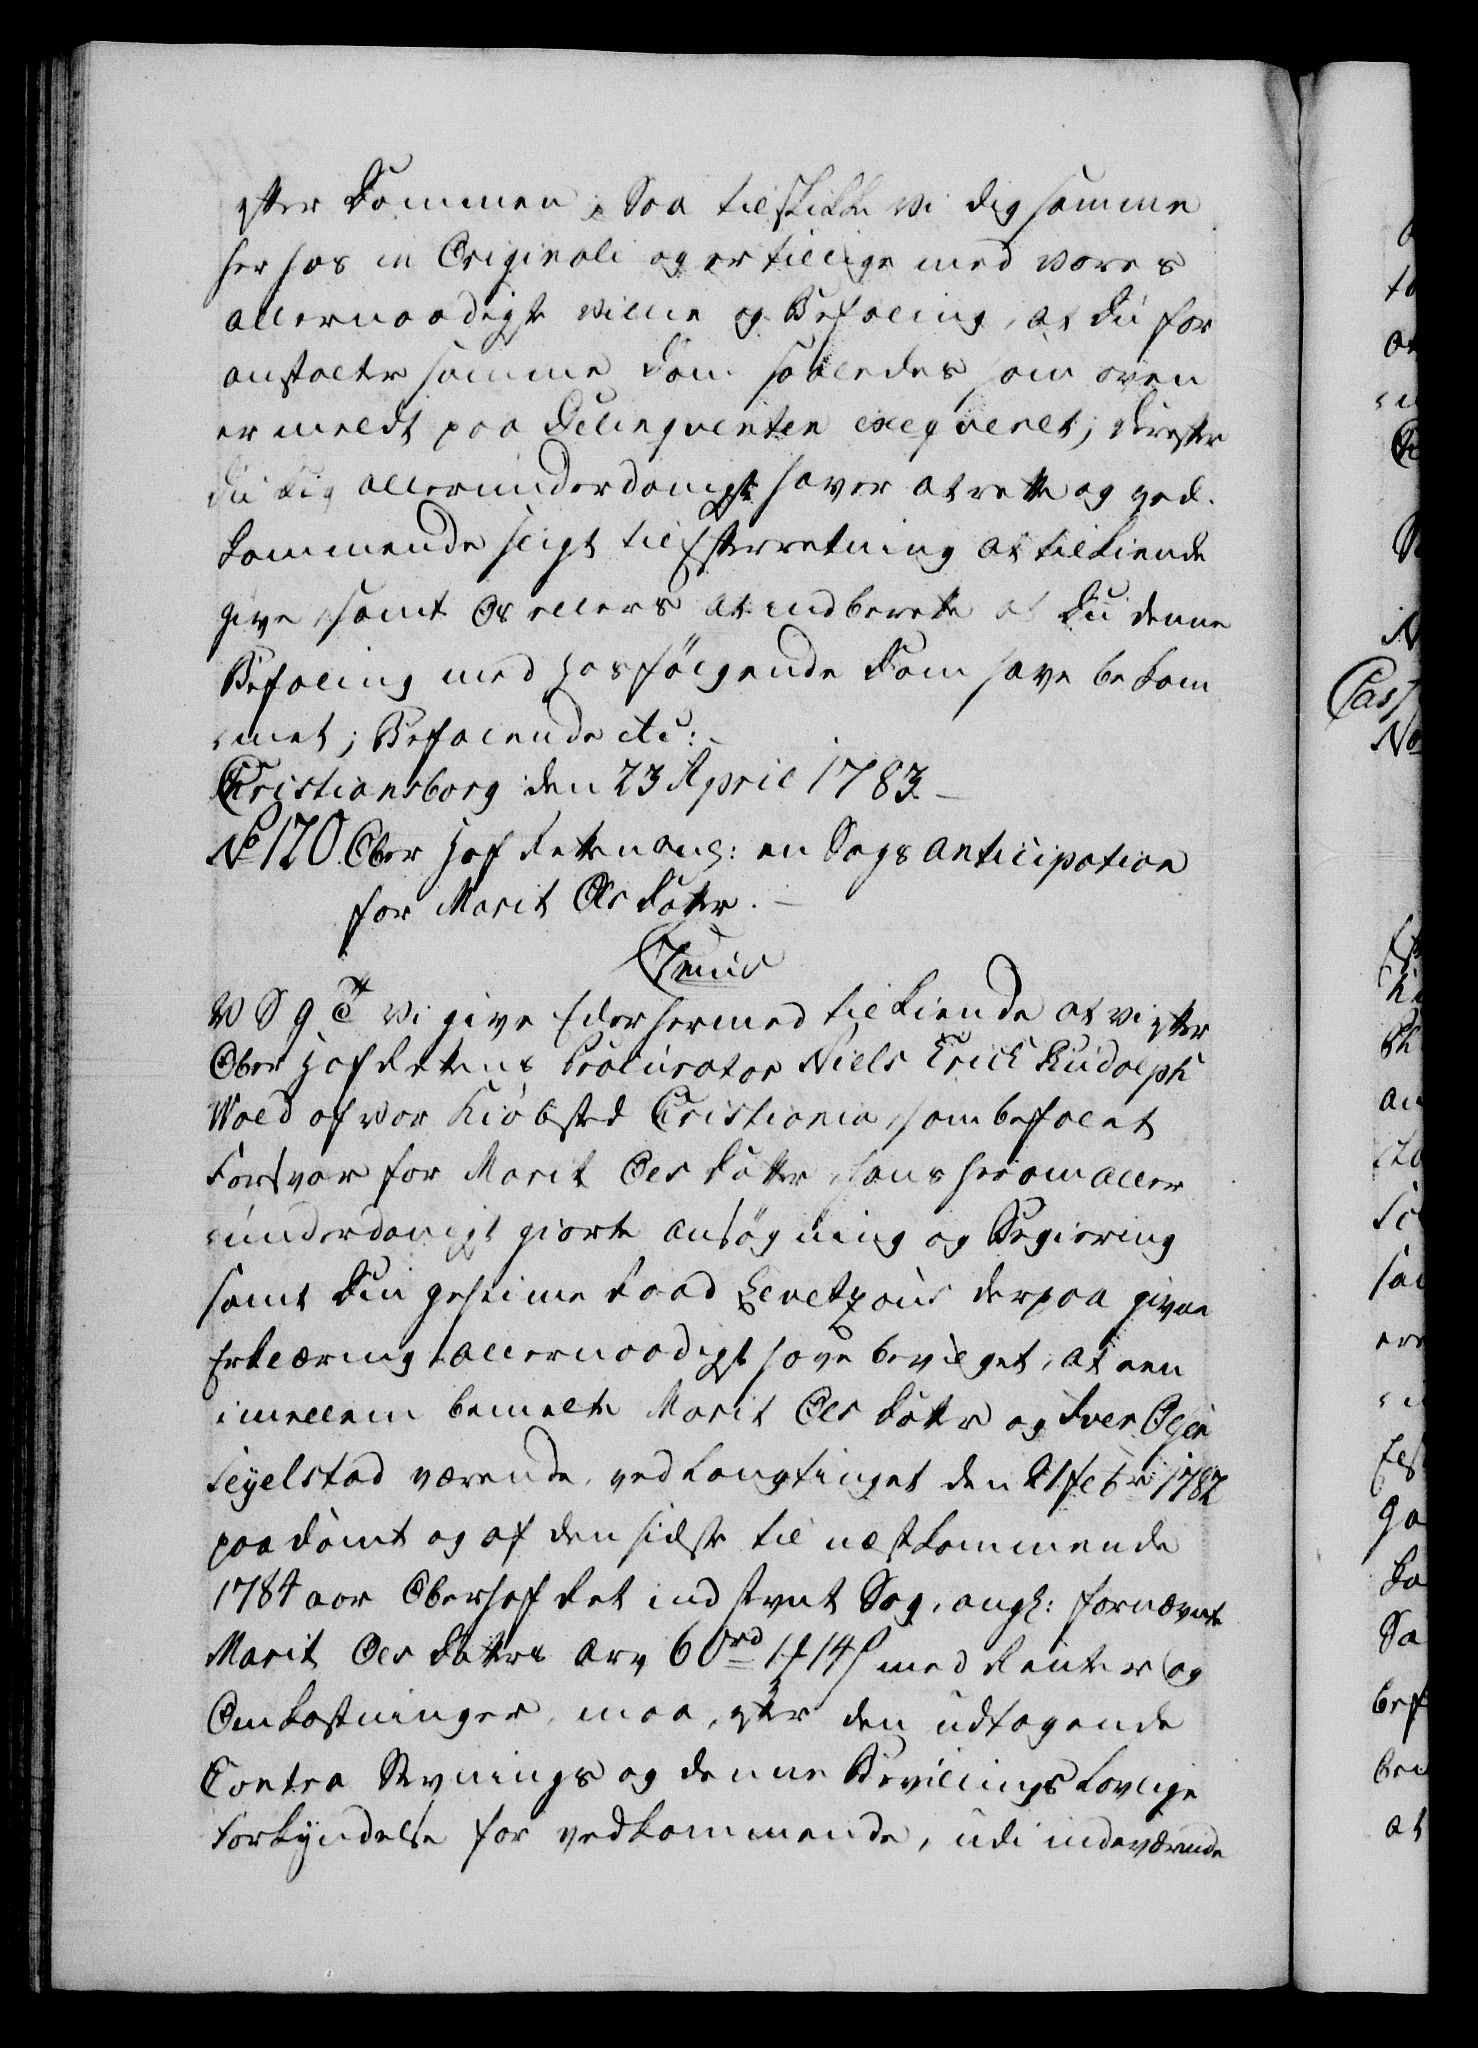 efter Dommen; Saa tilskikke vi dig samme
her hos in Originali og er tillige med vores
allernaadigste villie og Befaling, at Du for
anstalter samme Dom saaledes som oven
er meldt paa Delinqventen exeqveret; Derefter
Du dig allerunderdanigst haver at rette og ved-
kommende sligt til Efterretning at tilkiende
give, samt Os ellers at indberette at Du denne
Befaling med hosfølgende Dom have bekom
met; Befalende etc:
Christiansborg den 23 April 1783.
No 120. Ober Hof Retten ang: en Sags anticipation
for Marit Ols Datter.
C 7mus
W S G T Vi give Eder hermed tilkiende at vi efter
Ober Hof Rettens Procurator Niels Erich Rudolph
Wold af vor Kiøbsted Christiania, som befalet
Forsvar for Marit Ols Datter, hans herom aller
underdanigst giorte ansøgning og Regiering
samt Din geheime Raad Levetzous derpaa givne
Erklæring allernaadigst have bevilget, at een
imellem bemelte Marit Ols Datter og Iver Olsen
værende, ved Laugtinget den 21 Febr: 1782
paadømt og af den sidste til næstkommende
1784 aar Oberhof Ret indstevnt Sag, angl: fornævnte
Marit Ols Datters Arv 60 rd 1 # 14 s med Renter og
Omkostninger, maa, efter den udtagende
Contra Stevnings og denne Bevillings Lovlige
Forkyndelse for vedkommende, udi indeværende